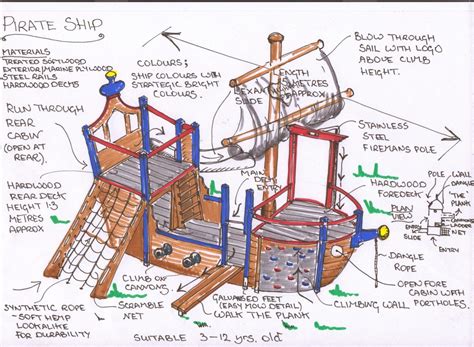 PIRATE SHIP
MATERIALS
TREATED SOFTWOOD
EXTERIOR/MARINE PLYWOOD
STEEL RAILS
HARDWOOD DECKS
COLOURS;
SHIP COLOURS WITH
STRATEGIC BRIGHT
COLOURS.
LENGTH
METRES
APPROX
SLIDE
BLOW THROUGH
SAIL WITH LOGO
ABOVE CLIMB
HEIGHT.
RUN THROUGH
REAR
CABIN
(OPEN AT
REAR).
STAINLESS
STEEL
FIREMANS POLE
MAIN
DECK
ENTRY
HARDWOOD
REAR DECK
HEIGHT 1.3
METRES
APPROX
HARDWOOD
FOREDECK
POLE
WALL
'THE'
PLANK
PLAN
VIEW
CANNONS
LADDER
NET
ENTRY
SLIDE
ENTRY
DANGLE
ROPE
OPEN FORE
CABIN WITH
PORTHOLES.
CLIMBING WALL
CLIMB ON
CANNONS.
SCRAMBLE
NET
GALVANISED FEET
(EASY MOW DETAIL)
WALK THE PLANK
SYNTHETIC ROPE
- SOFT HEMP
LOOKALIKE
FOR DURABILITY
SUITABLE 3-12 yrs. old